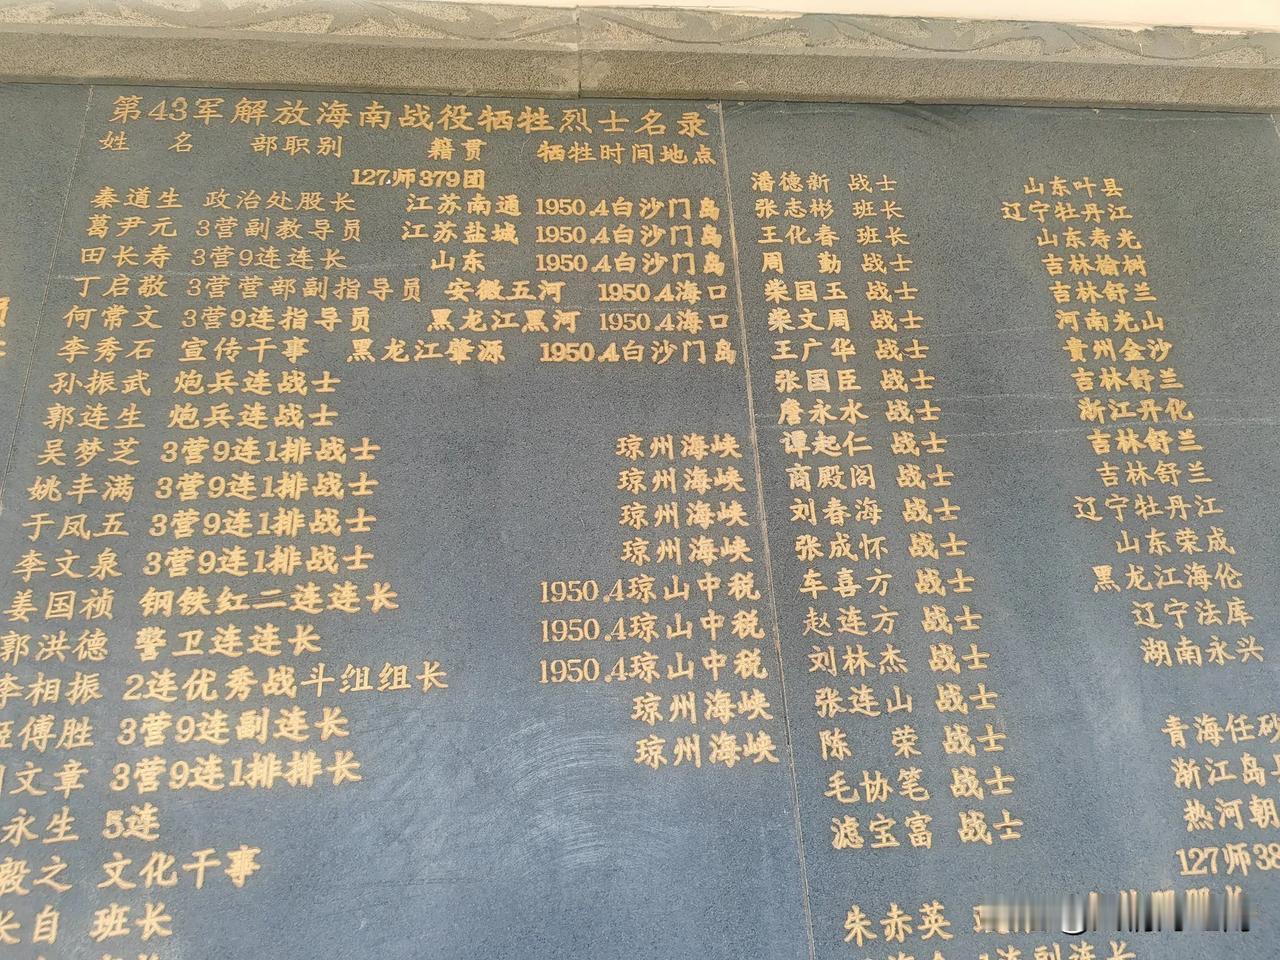 第43军解放海南战役牺牲烈士名录
姓 名 部职别 籍贯 牺牲时间地点
127师379团
秦道生 政治处股长 江苏南通 1950.4白沙门岛
葛尹元 3营副教导员 江苏盐城 1950.4白沙门岛
田长寿 3营9连连长 山东 1950.4白沙门岛
丁启敬 3营营部副指导员 安徽五河 1950.4海口
何常文 3营9连指导员 黑龙江黑河 1950.4海口
李秀石 宣传干事 黑龙江肇源 1950.4白沙门岛
孙振武 炮兵连战士
郭连生 炮兵连战士
吴梦芝 3营9连1排战士 琼州海峡
姚丰满 3营9连1排战士 琼州海峡
于凤五 3营9连1排战士 琼州海峡
李文泉 3营9连1排战士 琼州海峡
姜国祯 钢铁红二连连长 1950.4琼山中税
郭洪德 警卫连连长 1950.4琼山中税
李相振 2连优秀战斗组组长 1950.4琼山中税
傅胜 3营9连副连长 琼州海峡
文章 3营9连1排排长 琼州海峡
永生 5连
毅之 文化干事
长自 班长
潘德新 战士 山东叶县
张志彬 班长 辽宁牡丹江
王化春 班长 山东寿光
周 勤 战士 吉林榆树
柴国玉 战士 吉林舒兰
柴文周 战士 河南光山
王广华 战士 貴州金沙
张国臣 战士 吉林舒兰
詹永水 战士 浙江开化
谭起仁 战士 吉林舒兰
商殿阁 战士 吉林舒兰
刘春海 战士 辽宁牡丹江
张成怀 战士 山东荣成
车喜方 战士 黑龙江海伦
赵连方 战士 辽宁法库
刘林杰 战士 湖南永兴
张连山 战士
陈 荣 战士 青海任砂
毛协笔 战士 浙江岛
滤宝富 战士 热河朝
127师38
朱赤英
连副连长